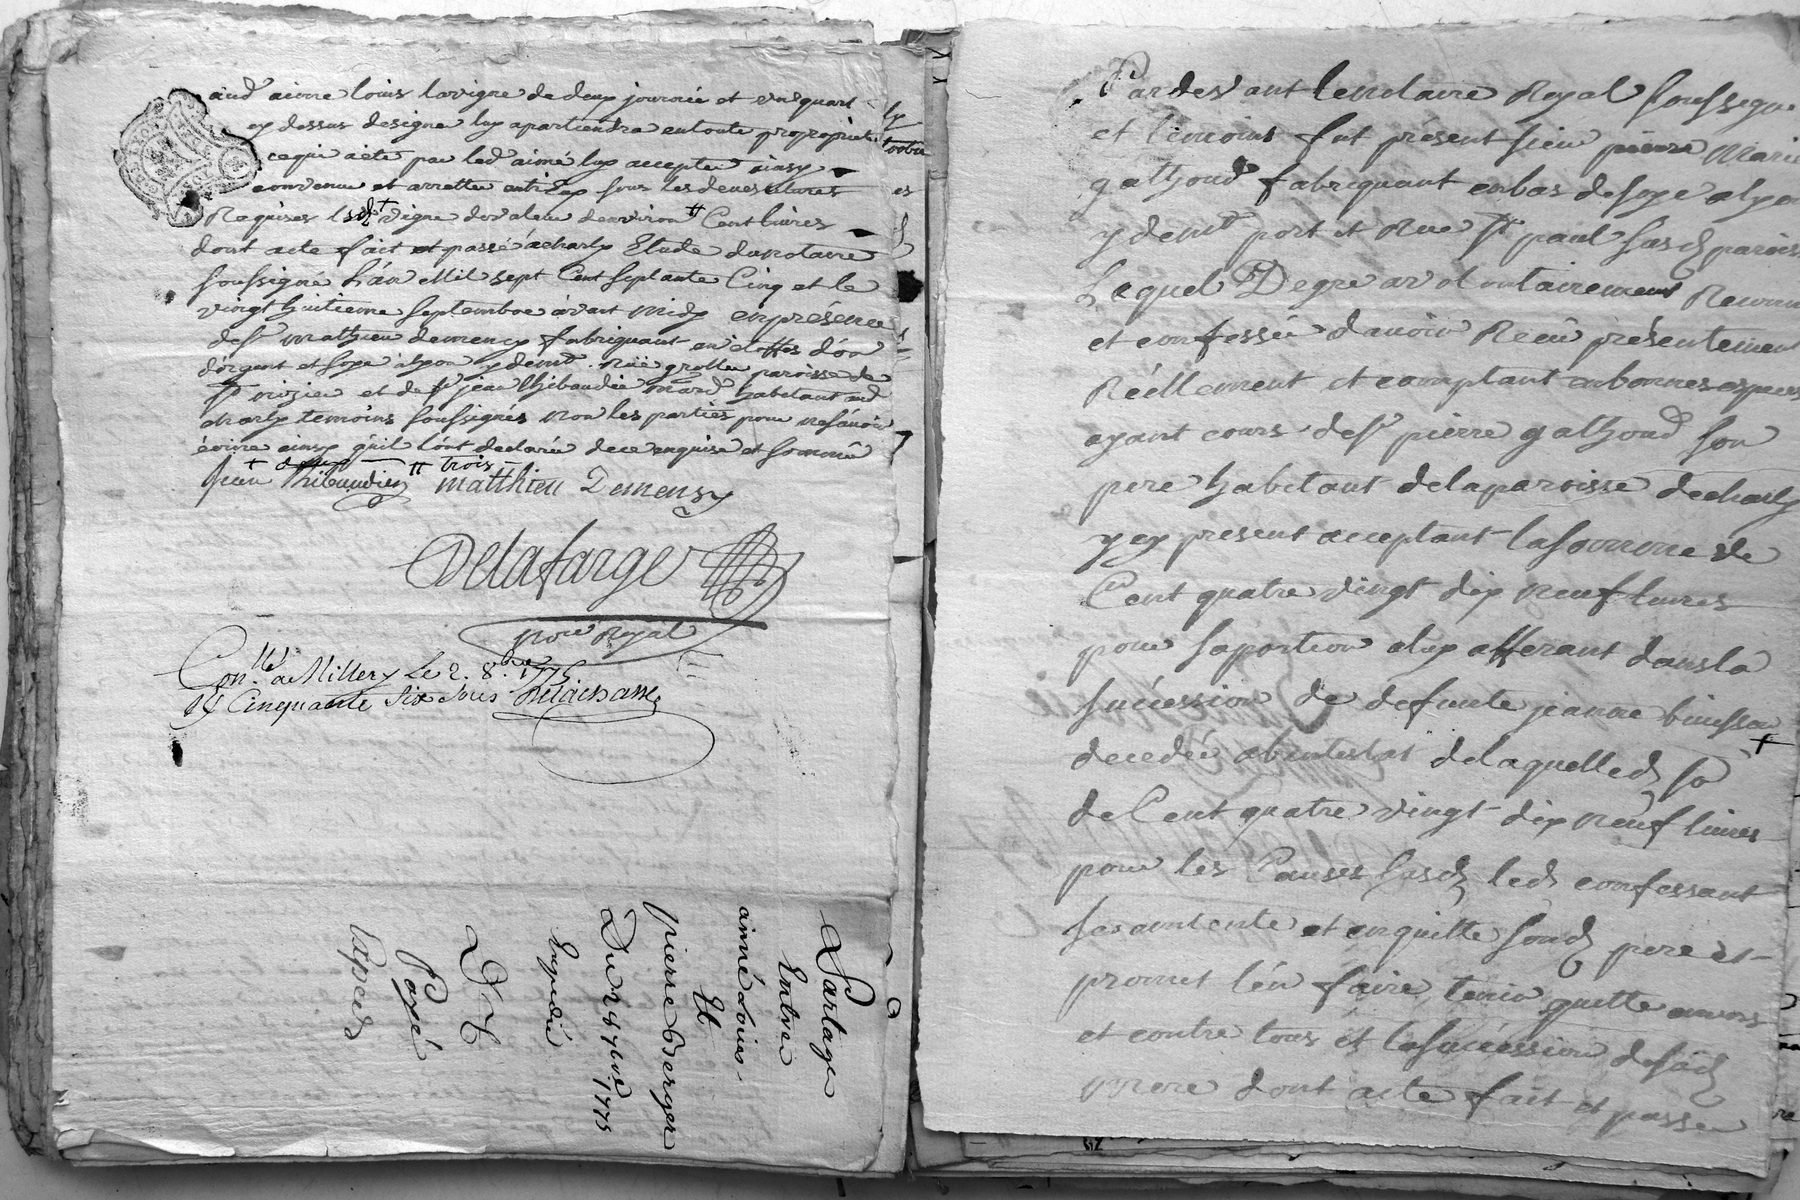 aud aimé louis lavigne de deux journée et un quart
cy dessus designe luy apartiendra en toute propropriete
ce qui a été par led aimé luy accepter ainsy
convenu et arretter entr'eux sous les
Requises lade vigne de valeur d'environ Cent livres
dont acte fait et passé a charly Etude du notaire
soussigné L'an Mil sept Cent septante Cinq et le
vingt huitieme septembre avant midy en présence
de sr mathieu demency fabriquant en etoffes d'or
d'argent et soye à lyon y demt. Rüe grollee paroisse de
st nizier et de sr jean thibaudier mard habitant aud
charly temoins soussignés non les parties pour ne sçavoir
écrire ainsy qu'il l'ont declarée de ce enquise et sommé
trois
jean thibaudier matthieu Demensy
Delafarge
nore Royal
Conlé a Millery Le 2. 8bre 1775
Cinquante six sous Delaichasse
Partage
Entre
aimé Louis
Et
pierre Berger
Du 28 7bre. 1775
Expedié
Payé
Pardevant le notaire Royal soussigne
et temoins fut présent sieur pierre Marie
gathoud fabriquant en bas de soye a lyon
y demt port et Rue st paul susd parois
Lequel De gre a volontairement Reconnu
et confessée d'avoir Receu présentement
Réellement et comptant en bonnes especes
ayant cours de sr pierre gathoud son
pere habitant de la paroisse de charly
y cy present acceptant la somme de
Cent quatre vingt dix neuf livres
pour sa portion a luy afferant dans la
succession de defunte jeanne buisson
decedée abintestat de laquelled so
de Cent quatre vingt dix neuf livres
pour les Causes susd led confessant
se contente et en quitte sond pere et
promet l'en faire tenir quitte envers
et contre tous et la succession de sad
mere dont acte fait et passé